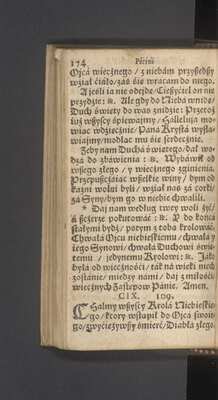 174 Pieśni
Oycá wiecznego / z niebám przyszedszy
wziął ciáło / zás śię wracam do niego.
A jesli ia nie odeyde / Cieszyciel on nie
przydzie: ꝛc. Ale gdy do Niebá wnide /
Duch święty do was znidzie: Przetoż
iuż wszyscy śpiewaymy / Halleluja mo-
wiąc wdzięcznie / Páná Krystá wysłá-
wiaymy / modląc mu się serdecznie.
Zeby nam Duchá świetego / dał wo-
dzá do zbáwienia: ꝛc. Wybáwił od
wßego złego / y wiecznego zginienia.
Przepuszczáiąc wßelkie winy / bym do
káźni wolni byli / wziął nas zá corki /
zá Syny / bym go w niebie chwalili.
* Day nam według twey woli żyć /
á ßczerze pokutowáć: ꝛc. Y do końcá
stałymi bydź / potym z tobą krolowáć:
Chwałá Oycu niebieskiemu / chwałá y
iego Synowi / chwałá Duchowi świę-
temu / jedynemu Krolowi: ꝛc. Jáko
byłá od wieczności / ták ná wieki niech
zostánie / miedzy námi / day z miłości
wiecznych Zastępow Pánie. Amen.
CIX. 109.
CHwalmy wßyscy Krolá Niebieskie-
go / ktory wstąpił do Oycá swoie-
go / zwyciężywßy śmierć / Diabłá złego